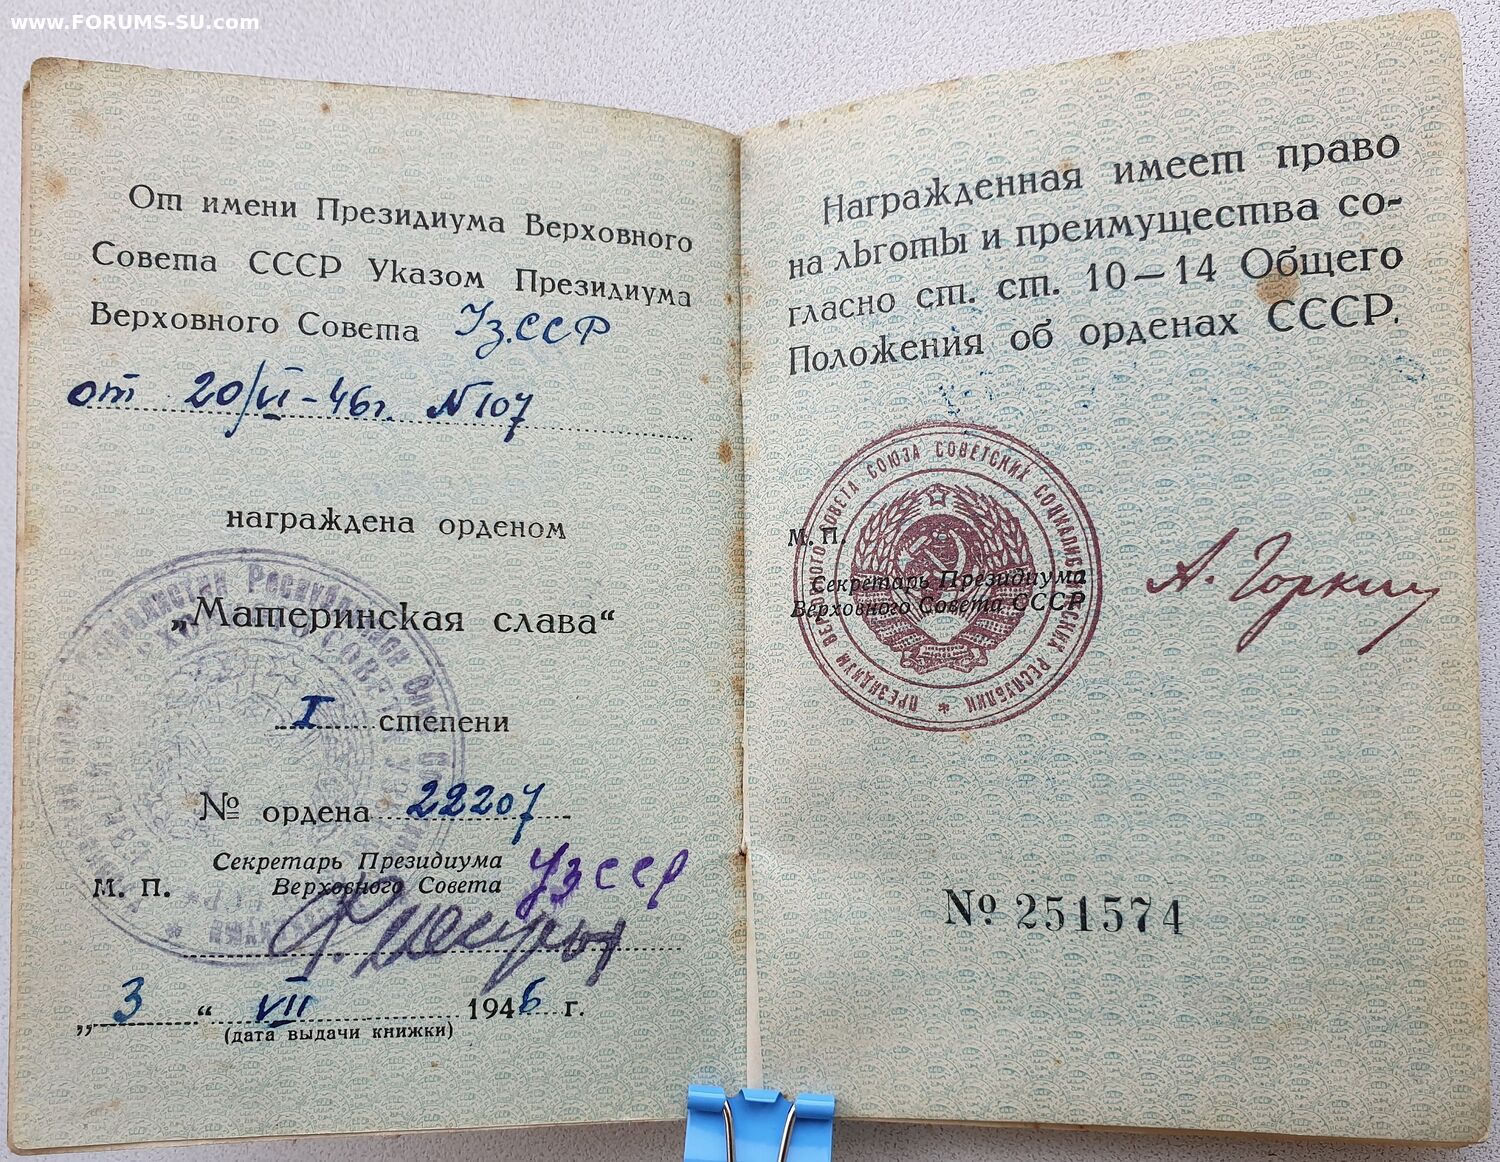 www.FORUMS-SU.com
От имени Президиума Верховного
Совета СССР Указом Президиума
Верховного Совета Уз.ССР
от 20/VI-46г. N107
награждена орденом
„Материнская слава“
I степени
№ ордена 22207
Секретарь Президиума
Верховного Совета УзССР
М. П.
„3“ VII 1946 г.
(дата выдачи книжки)
Награжденная имеет право
на льготы и преимущества со-
гласно ст. ст. 10—14 Общего
Положения об орденах СССР.
ПРЕЗИДИУМ ВЕРХОВНОГО СОВЕТА СОЮЗА СОВЕТСКИХ СОЦИАЛИСТИЧЕСКИХ РЕСПУБЛИК *
М. П.
Секретарь Президиума
Верховного Совета СССР
А. Горкин
№ 251574